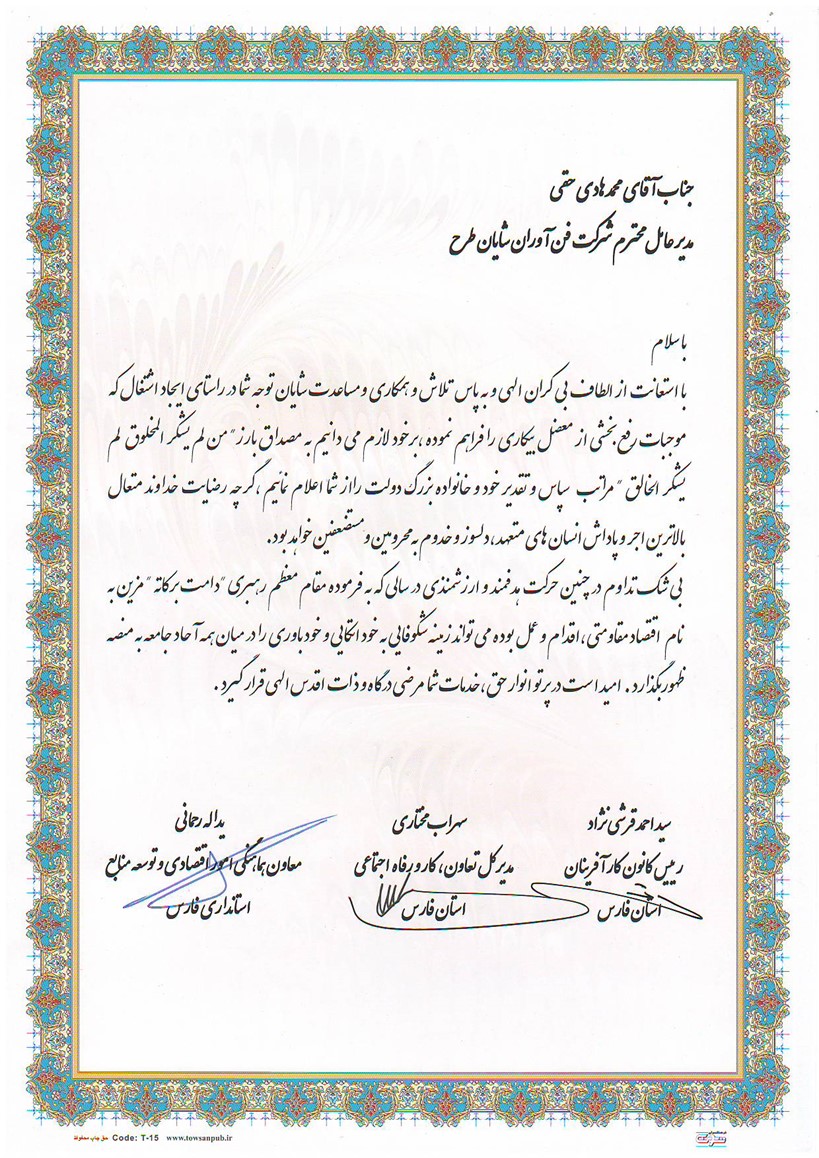 جناب آقای محمد هادی حقی
مدیر عامل محترم شرکت فن آوران شایان طرح
با سلام
با استعانت از الطاف بی کران الهی و به پاس تلاش و همکاری و مساعدت شایان توجه شما در راستای ایجاد اشتغال که
موجبات رفع بخشی از معضل بیکاری را فراهم نموده ، برخود لازم می دانیم به مصداق بارز " من لم یشکر المخلوق لم
یشکر الخالق " مراتب سپاس و تقدیر خود و خانواده بزرگ دولت را از شما اعلام نمائیم ، گرچه رضایت خداوند متعال
بالاترین اجر و پاداش انسان های متعهد، دلسوز و خدوم به محرومین و مستضعفین خواهد بود.
بی شک تداوم در چنین حرکت هدفمند و ارزشمندی در سالی که به فرموده مقام معظم رهبری "دامت برکاته " مزین به
نام اقتصاد مقاومتی ، اقدام و عمل بوده می تواند زمینه شکوفایی به خود اتکایی و خودباوری را در میان همه آحاد جامعه به منصه
ظهور بگذارد . امید است در پرتو انوار حق ، خدمات شما مرضی درگاه و ذات اقدس الهی قرار گیرد .
سید احمد قرشی نژاد سهراب مختاری یداله رحمانی
رییس کانون کارآفرینان مدیر کل تعاون، کار و رفاه اجتماعی معاون هماهنگی امور اقتصادی و توسعه منابع
استان فارس استان فارس استانداری فارس
حق چاپ محفوظ Code: T-15 www.towsanpub.ir